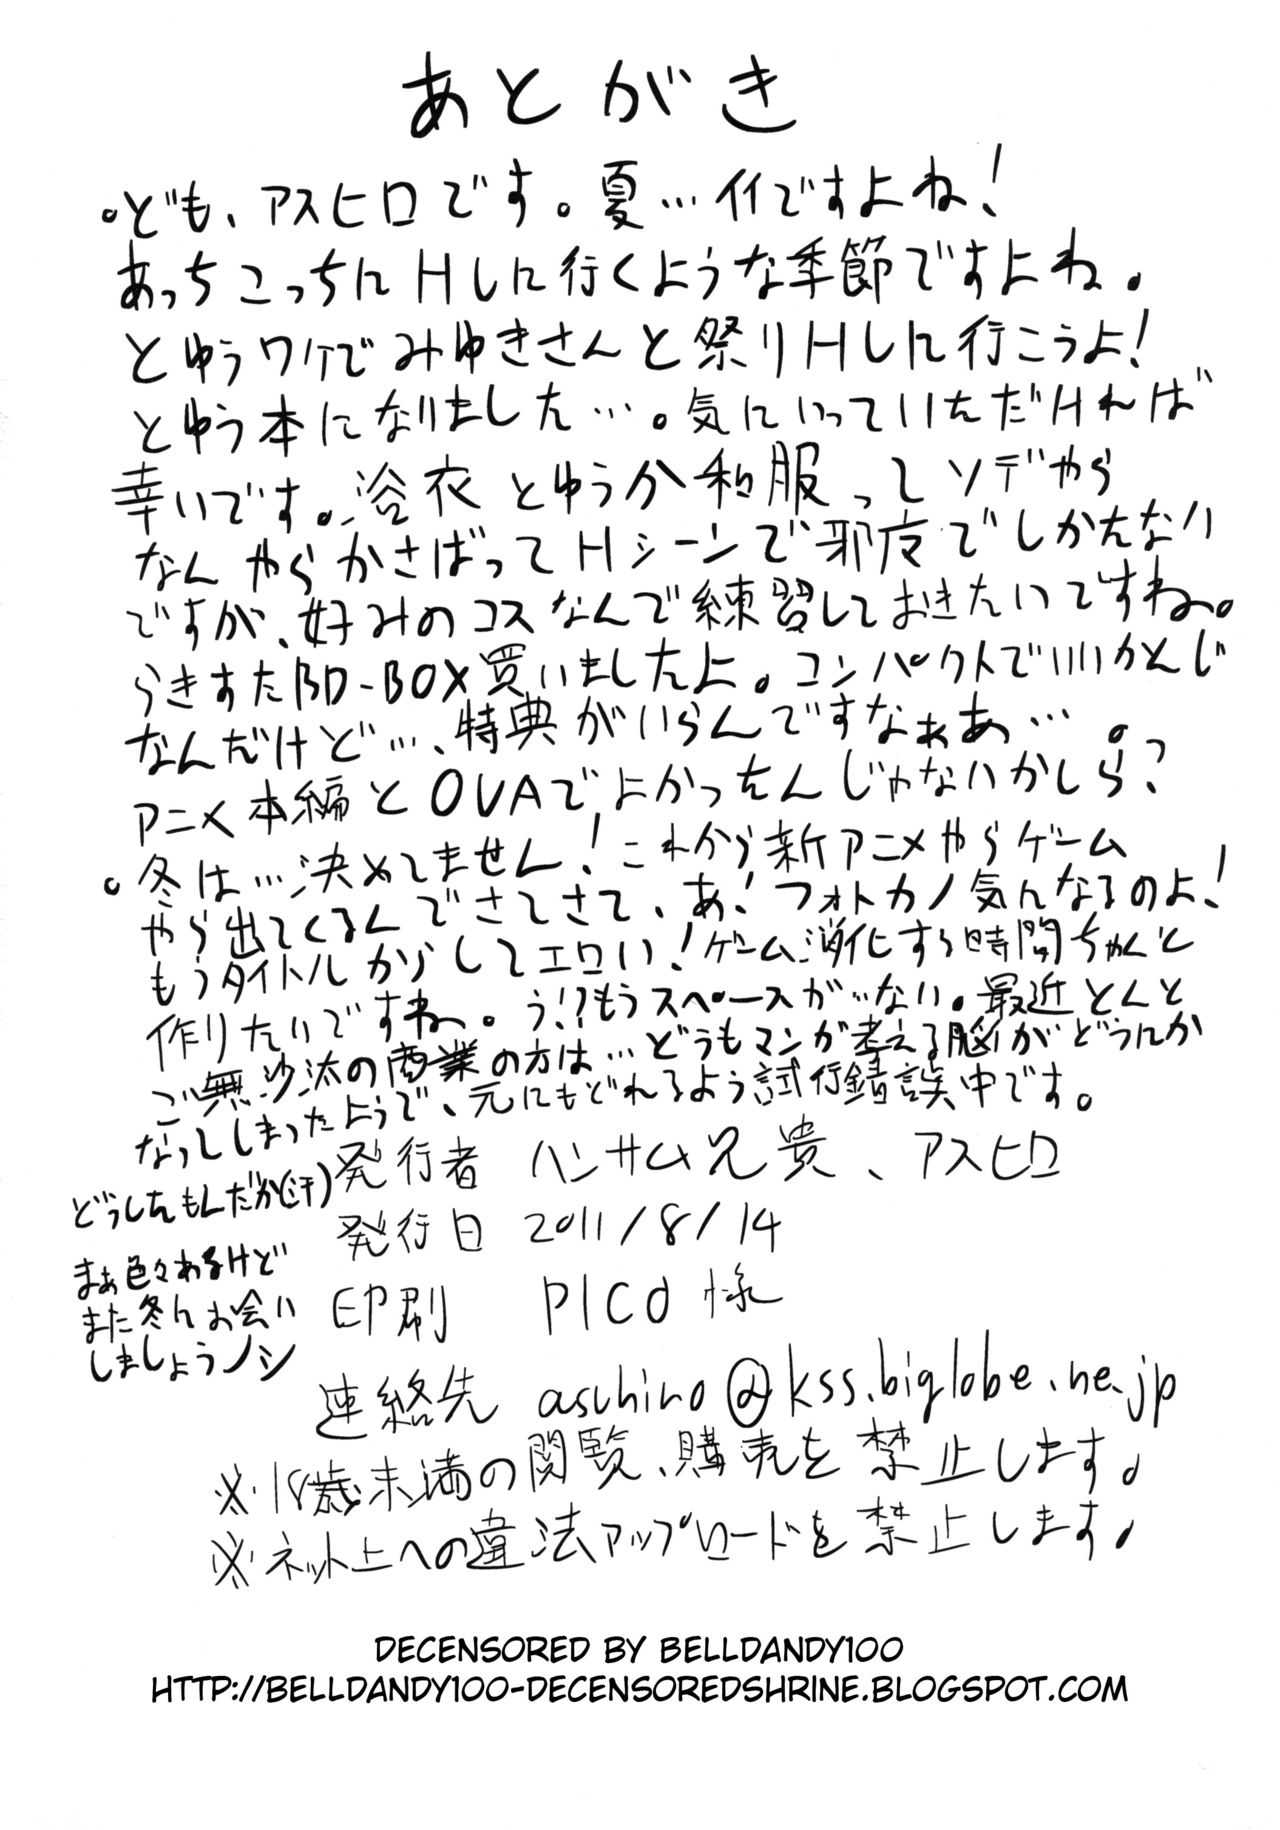 あとがき
。ども、アスヒロです。夏…イイですよね！
あっちこっちにHしに行くような季節ですよね。
とゆうワケでみゆきさんと祭りHしに行こうよ！
とゆう本になりました…。気にいっていただければ
幸いです。浴衣とゆうか和服ってソデやら
なんやらかさばってHシーンで邪魔でしかたない
ですが、好みのコスなんで練習しておきたいですね。
らきすたBD-BOX買いましたよ。コンパクトでいいかんじ
なんだけど…、特典がいらんですなぁあ…。
アニメ本編とOVAでよかったんじゃないかしら？
。冬は…決めてません！これから新アニメやらゲーム
やら出てくるんでさてさて、あ！フォトカノ気になるのよ！
もうタイトルからしてエロい！ゲーム消化する時間ちゃんと
作りたいですね。う！？もうスペースがない。最近とんと
ご無沙汰の商業の方は…どうもマンガ考える脳がどうにか
なってしまったようで、元にもどれるよう試行錯誤中です。
どうしたもんだか(汗)
まぁ色々あるけど
また冬にお会い
しましょうノシ
発行者 ハンサム兄貴、アスヒロ
発行日 2011/8/14
印刷 PICO様
連絡先 asuhiro@kss.biglobe.ne.jp
※18歳未満の閲覧、購売を禁止します。
※ネット上への違法アップロードを禁止します。
DECENSORED BY BELLDANDY100
HTTP://BELLDANDY100-DECENSOREDSHRINE.BLOGSPOT.COM